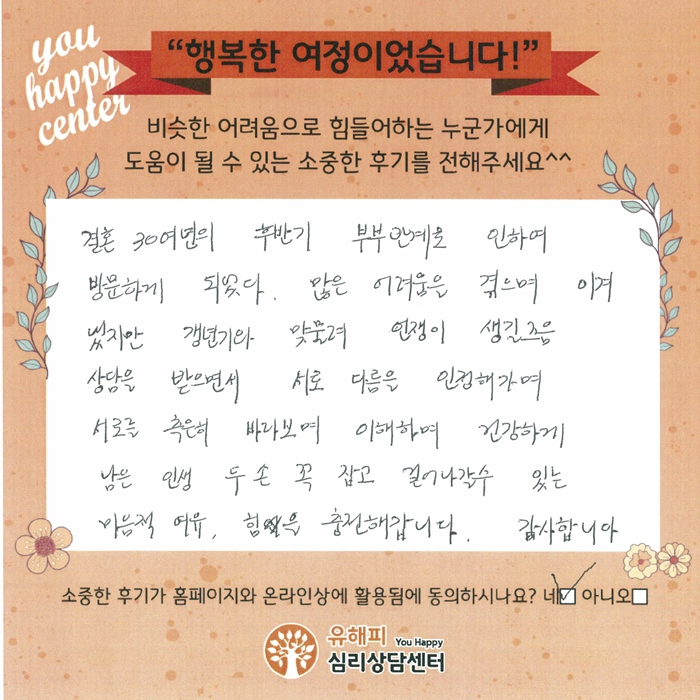 you
happy
center
“행복한 여정이었습니다!”
비슷한 어려움으로 힘들어하는 누군가에게
도움이 될 수 있는 소중한 후기를 전해주세요^^
결혼 30여년의 후반기 부부관계로 인하여
방문하게 되었다. 많은 어려움을 겪으며 이겨
냈지만 갱년기와 맞물려 언쟁이 생길즈음
상담을 받으면서 서로 다름을 인정해가며
서로를 측은히 바라보며 이해하며 건강하게
남은 인생 두 손 꼭 잡고 걸어나갈수 있는
마음적 여유, 힘을 충전해갑니다. 감사합니다
소중한 후기가 홈페이지와 온라인상에 활용됨에 동의하시나요? 네☑ 아니오☐
유해피 You Happy
심리상담센터